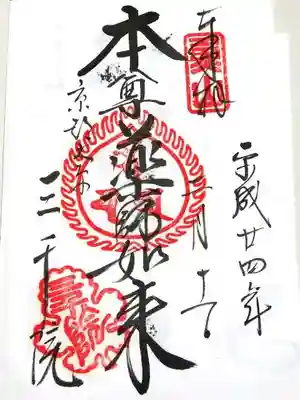 奉拝
平成廿四年
月十
本尊薬師如来
京都大原
三千院